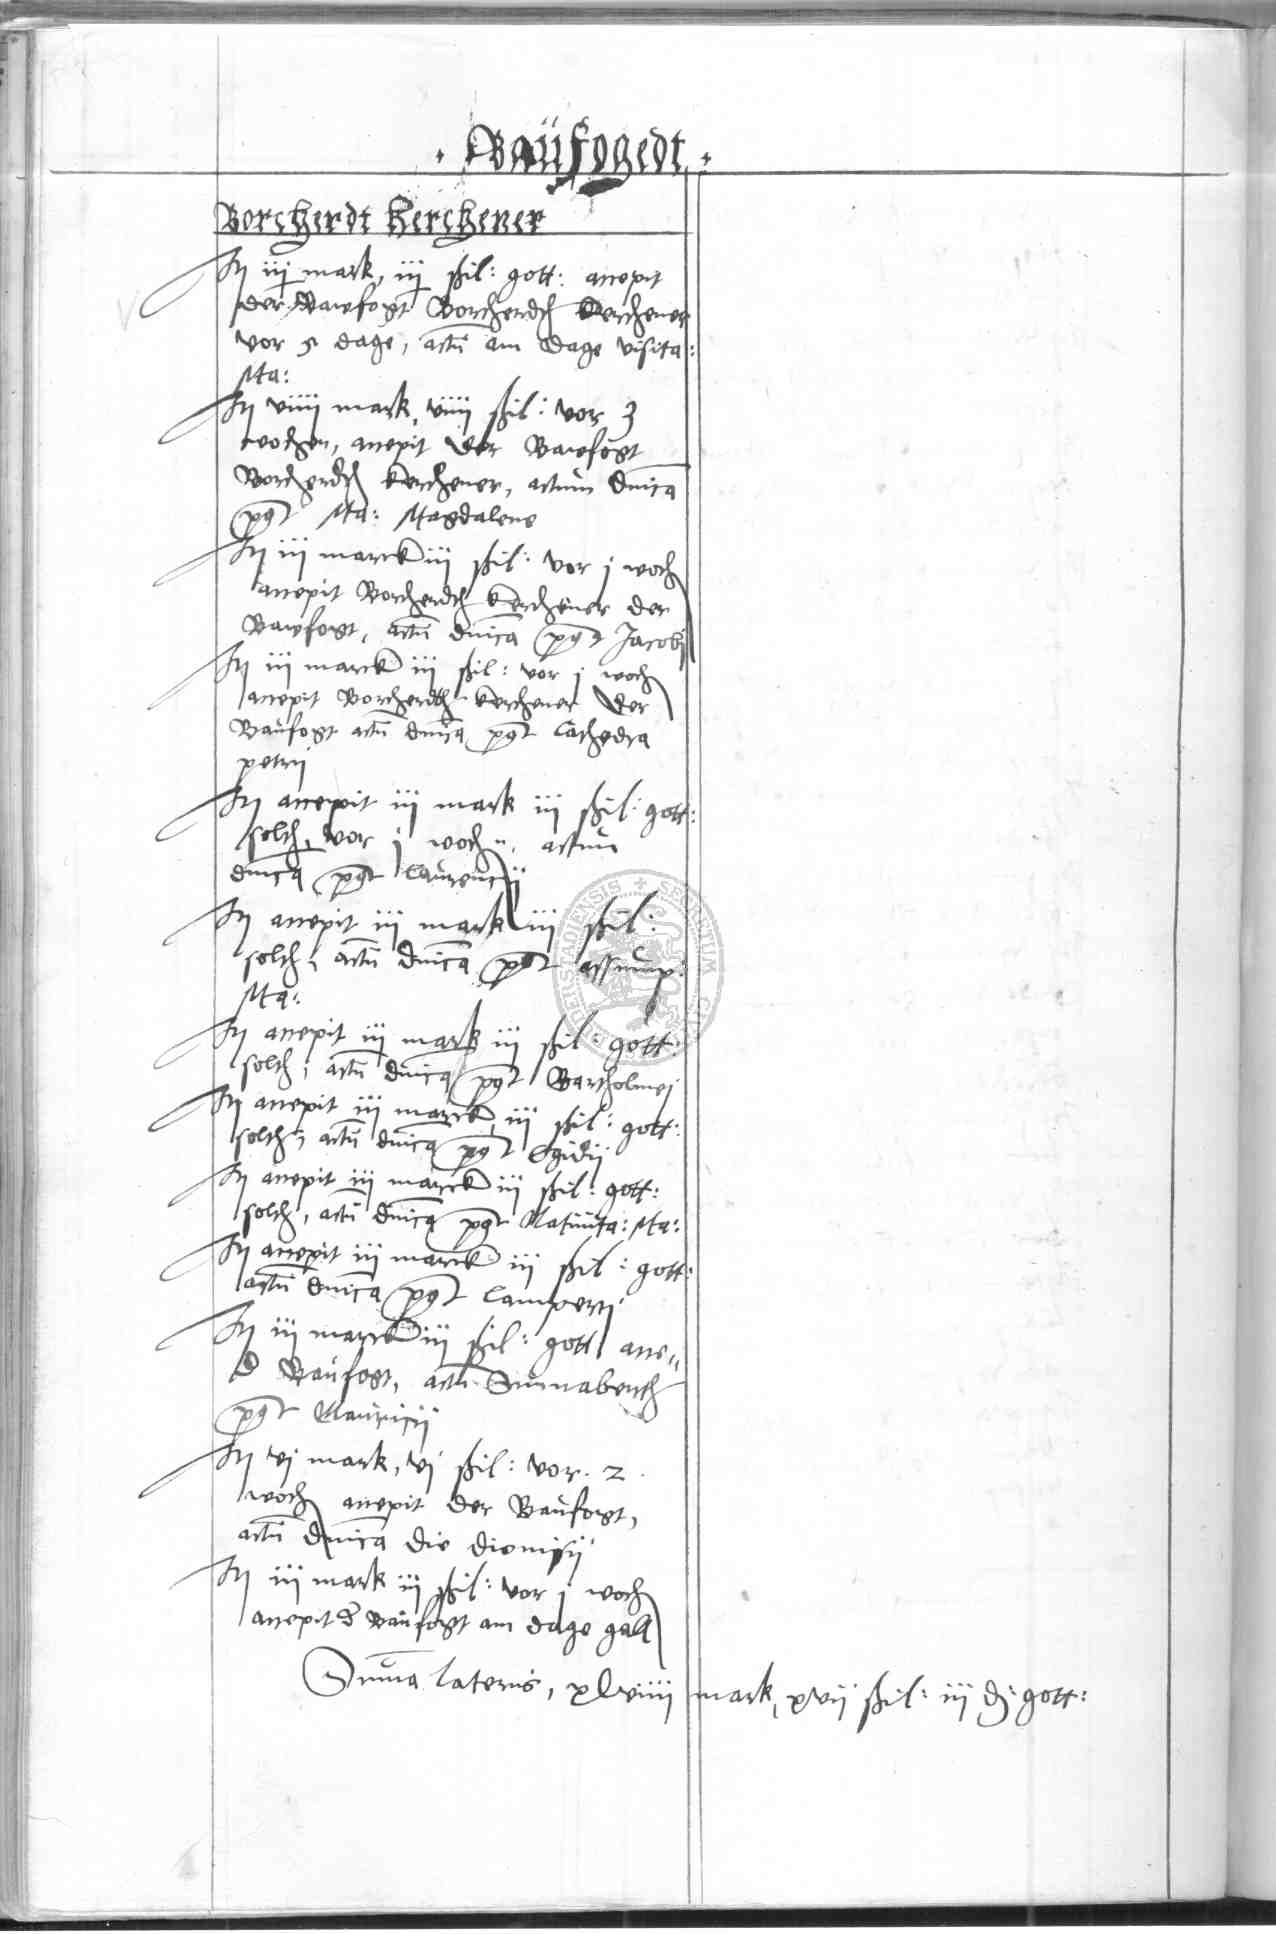 · Baüfogedt ·
Borcherdt Kerchener
It iij mark, iij ßil: gott: accepit
der Bawfogt Borcherdt Kerchener
vor 5 dage, actū am dage visita:
Ma:
It viiij mark, viiij ßil: vor 3
wochen, accepit der Bawfogt
Borcherdt Kerchener, actum dnica
post Ma: Magdalene
It iii marck iii ßil: vor j woch
accepit Borcherdt Kerchener der
Bawfogt, actū dnica post Jacobi
It iii marck iii ßil: vor j woch
accepit Borcherdt Kerchener der
Baufogt actū dnica post Cathedra
petri
It accepit iii mark iii ßil: gott:
solth, vor j woch, actum
dnica post laurencij
It accepit iii mark iii ßil:
solth, actū dnica post assump:
Ma:
It accepit iii mark iii ßil: gott:
solth, actū dnica post Bartholmej
It accepit iii marck, iii ßil: gott:
solth, actū dnica post Egidij
It accepit iii marck iii ßil: gott:
solth, actū dnica post Natiuita: Ma:
It accepit iii marck iii ßil: gott:
actū dnica post lamperti
It iii marck iii ßil: gott acce
d Baufogt, actū Sunnabenth
post Mauricij
It vj mark, vj ßil: vor. 2.
woch accepit der Baufogt,
actū dnica die dionisij
It iii mark iii ßil: vor j woch
accepit d Baufogt am dage galli
Suma lateris, xlviiii mark, xvii ßil: iij d: gott:
SECRETUM